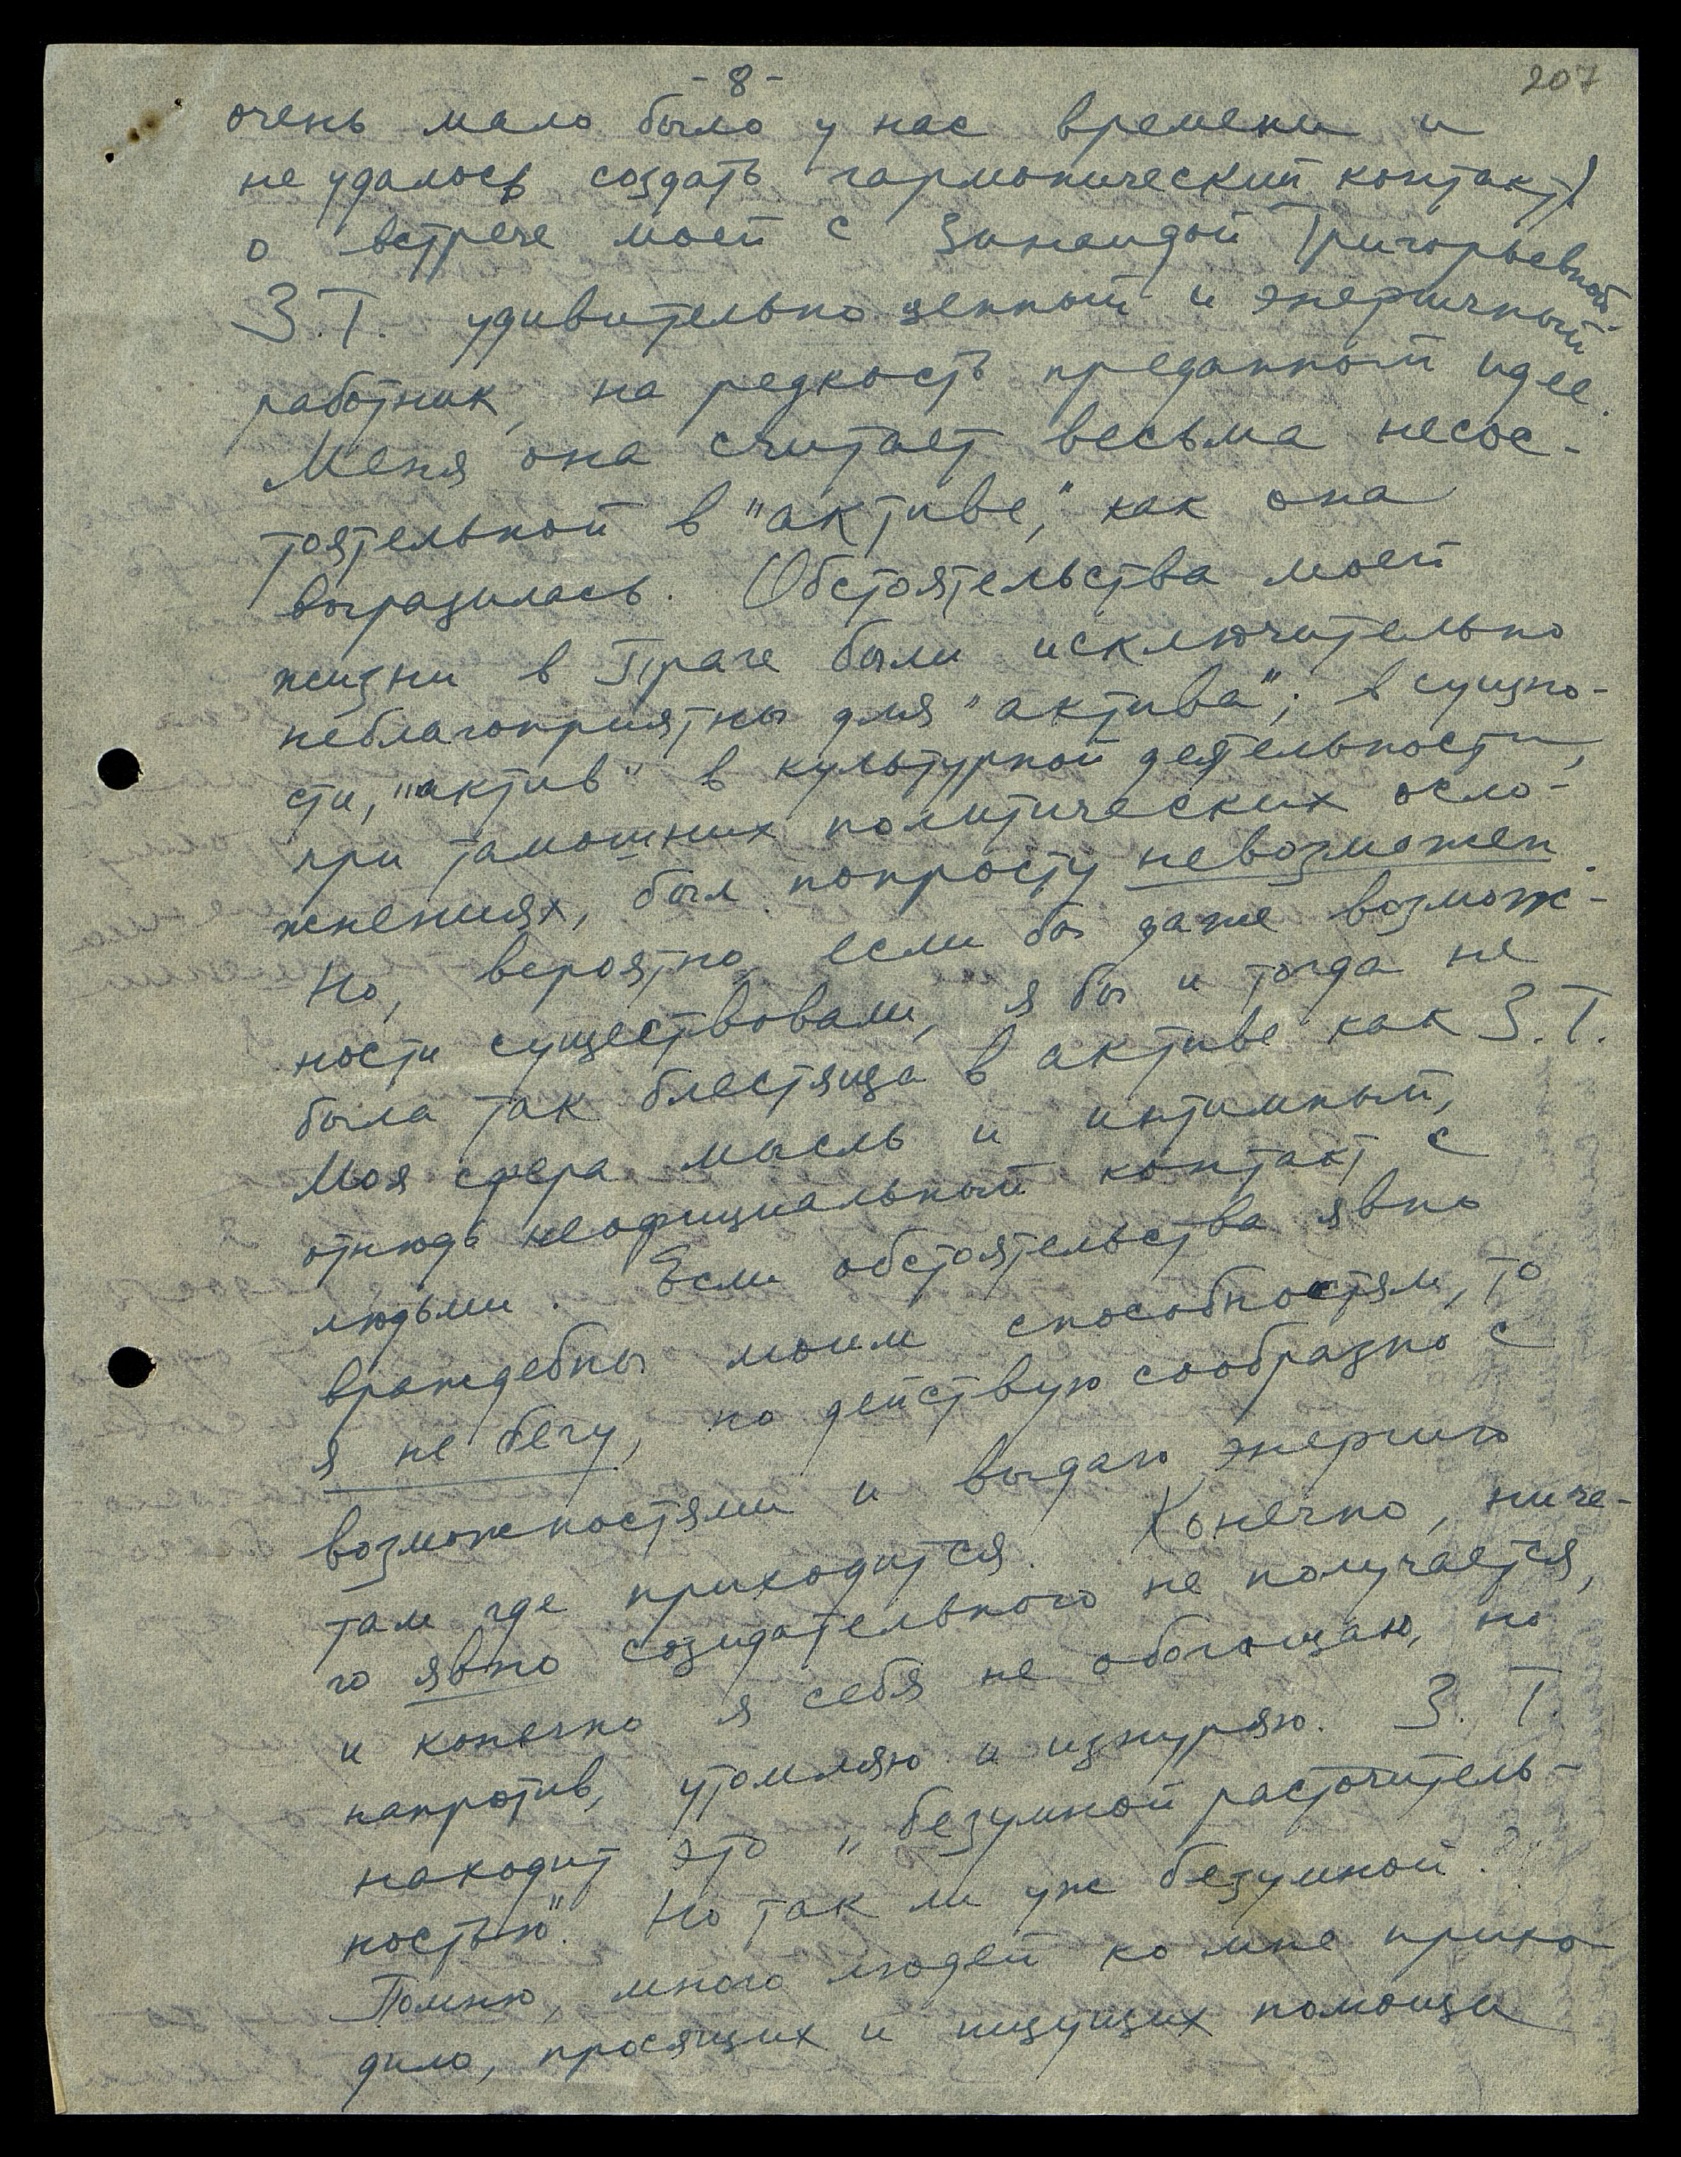 - 8 -
207
очень мало было у нас времени и
не удалось создать гармонический контакт)
о встрече моей с Зинаидой Григорьевной.
З.Г. удивительно ценный и энергичный
работник, на редкость преданный идее.
Меня она считает весьма несос-
тоятельной в "активе", как она
выразилась. Обстоятельства моей
жизни в Праге были исключительно
неблагоприятны для "актива"; в сущно-
сти, "актив" в культурной деятельности,
при тамошних политических осло-
жнениях, был попросту невозможен.
Но, вероятно, если бы даже возмож-
ности существовали, я бы и тогда не
была так блестяща в активе как З.Г.
Моя сфера мысль и интимный,
отнюдь неофициальный контакт с
людьми. Если обстоятельства явно
враждебны моим способностям, то
я не бегу, но действую сообразно с
возможностями и выдаю энергию
там где приходится. Конечно, ниче-
го явно созидательного не получается,
и конечно я себя не обогащаю, но
напротив, утомляю и изнуряю. З. Г.
находит это „безумной расточитель-
ностью". Но так ли уж безумной?
Помню, много людей ко мне прихо-
дило, просящих и ищущих помощи